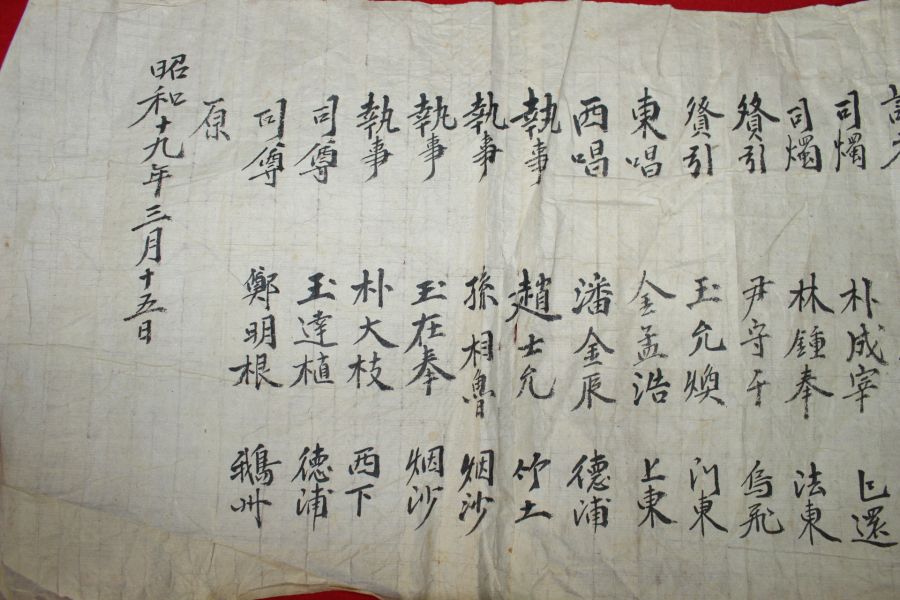 司燭 朴成宰 㔾還
司燭 林鍾奉 法東
賛引 尹守千 烏飛
賛引 玉允煥 門東
東唱 金孟浩 上東
西唱 潘金辰 德浦
執事 趙士允 竹土
執事 孫相魯 烟沙
執事 玉在奉 烟沙
執事 朴大枝 西下
司尊 玉達植 德浦
司尊 鄭明根 鵝州
原
昭和十九年三月十五日